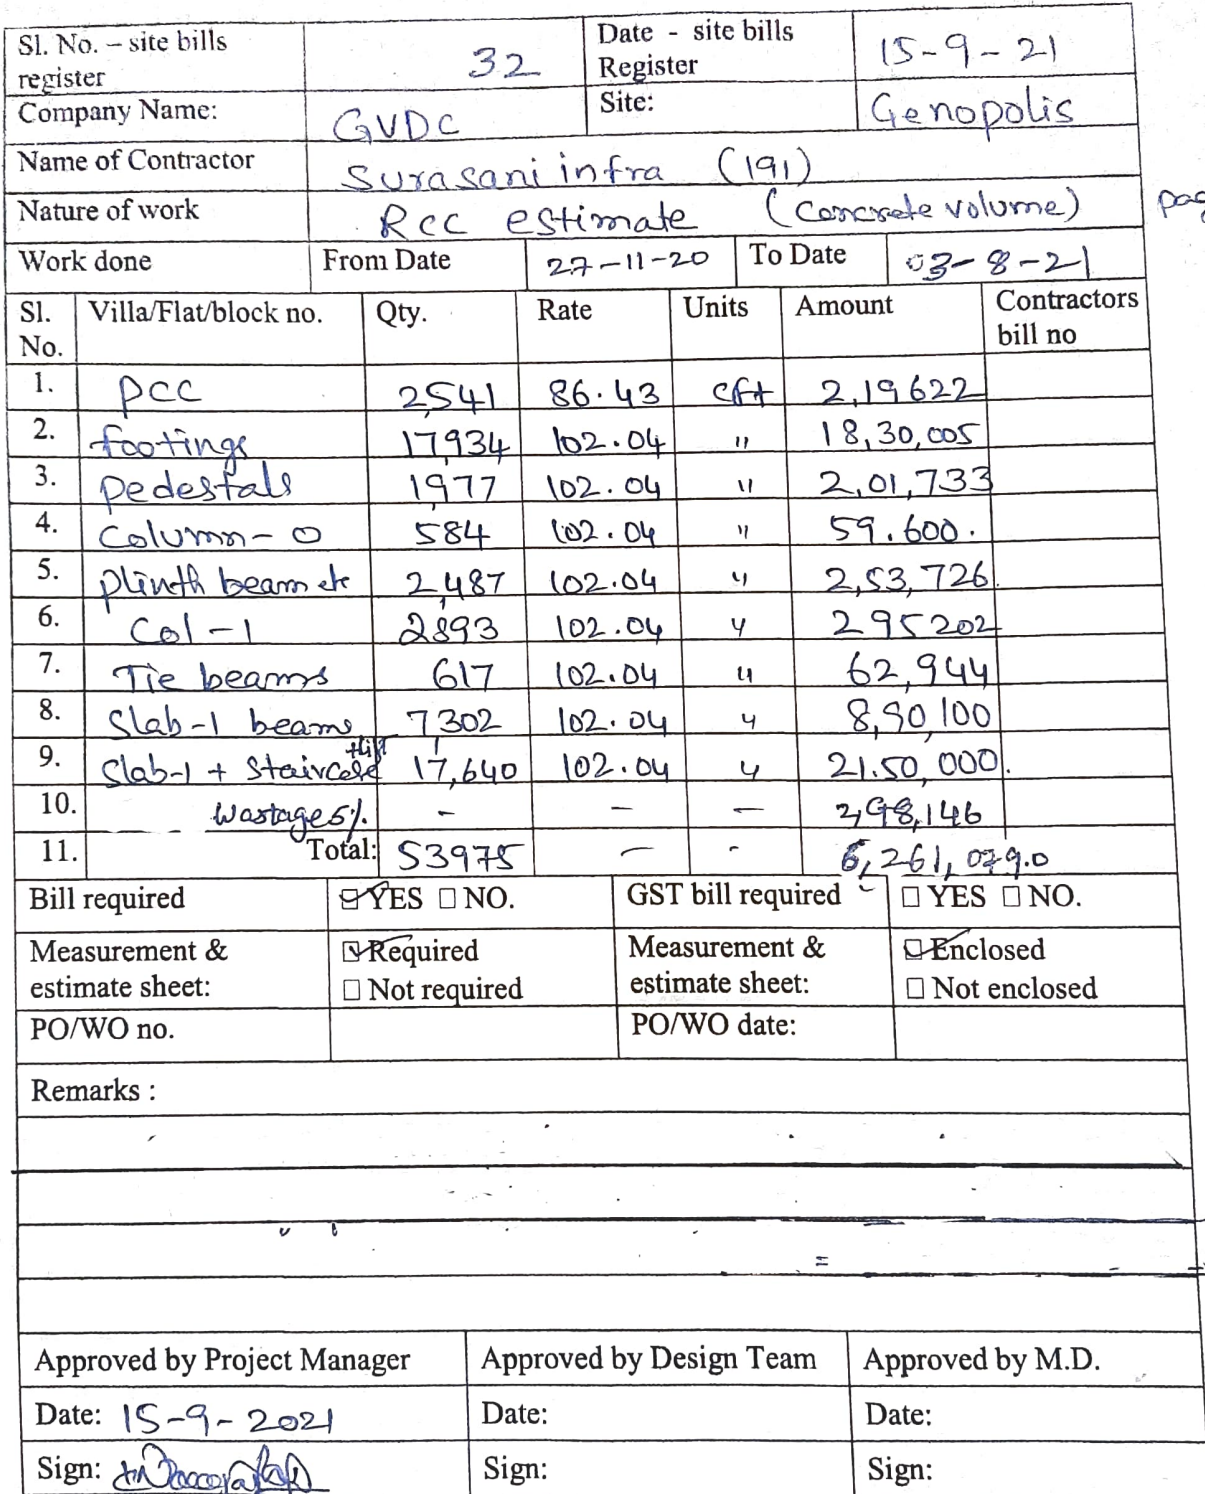 Sl. No. – site bills register 32 Date - site bills Register 15-9-21
Company Name: GVDC Site: Genopolis
Name of Contractor Surasani infra (191)
Nature of work Rcc estimate (Concrete volume) pag
Work done From Date 27-11-20 To Date 03-8-21
Sl. No. Villa/Flat/block no. Qty. Rate Units Amount Contractors bill no
1. PCC 2,541 86.43 cft 2,19622
2. footings 17,934 102.04 " 18,30,005
3. Pedestals 1,977 102.04 " 2,01,733
4. Column-0 584 102.04 " 59.600.
5. Plinth beam etc 2,487 102.04 " 2,53,726
6. Col-1 2893 102.04 " 295202
7. Tie beams 617 102.04 " 62,944
8. Slab-1 beams 7302 102.04 " 8,90,100
9. Slab-1 + Staircase +lift 17,640 102.04 " 21.50,000.
10. Wastage 5%. - - - 2,98,146
11. Total: 53975 - - 6,261,079.0
Bill required ☑ YES □ NO. GST bill required □ YES □ NO.
Measurement & estimate sheet: ☑ Required □ Not required Measurement & estimate sheet: ☑ Enclosed □ Not enclosed
PO/WO no. PO/WO date:
Remarks :
Approved by Project Manager Approved by Design Team Approved by M.D.
Date: 15-9-2021 Date: Date:
Sign: Sign: Sign: